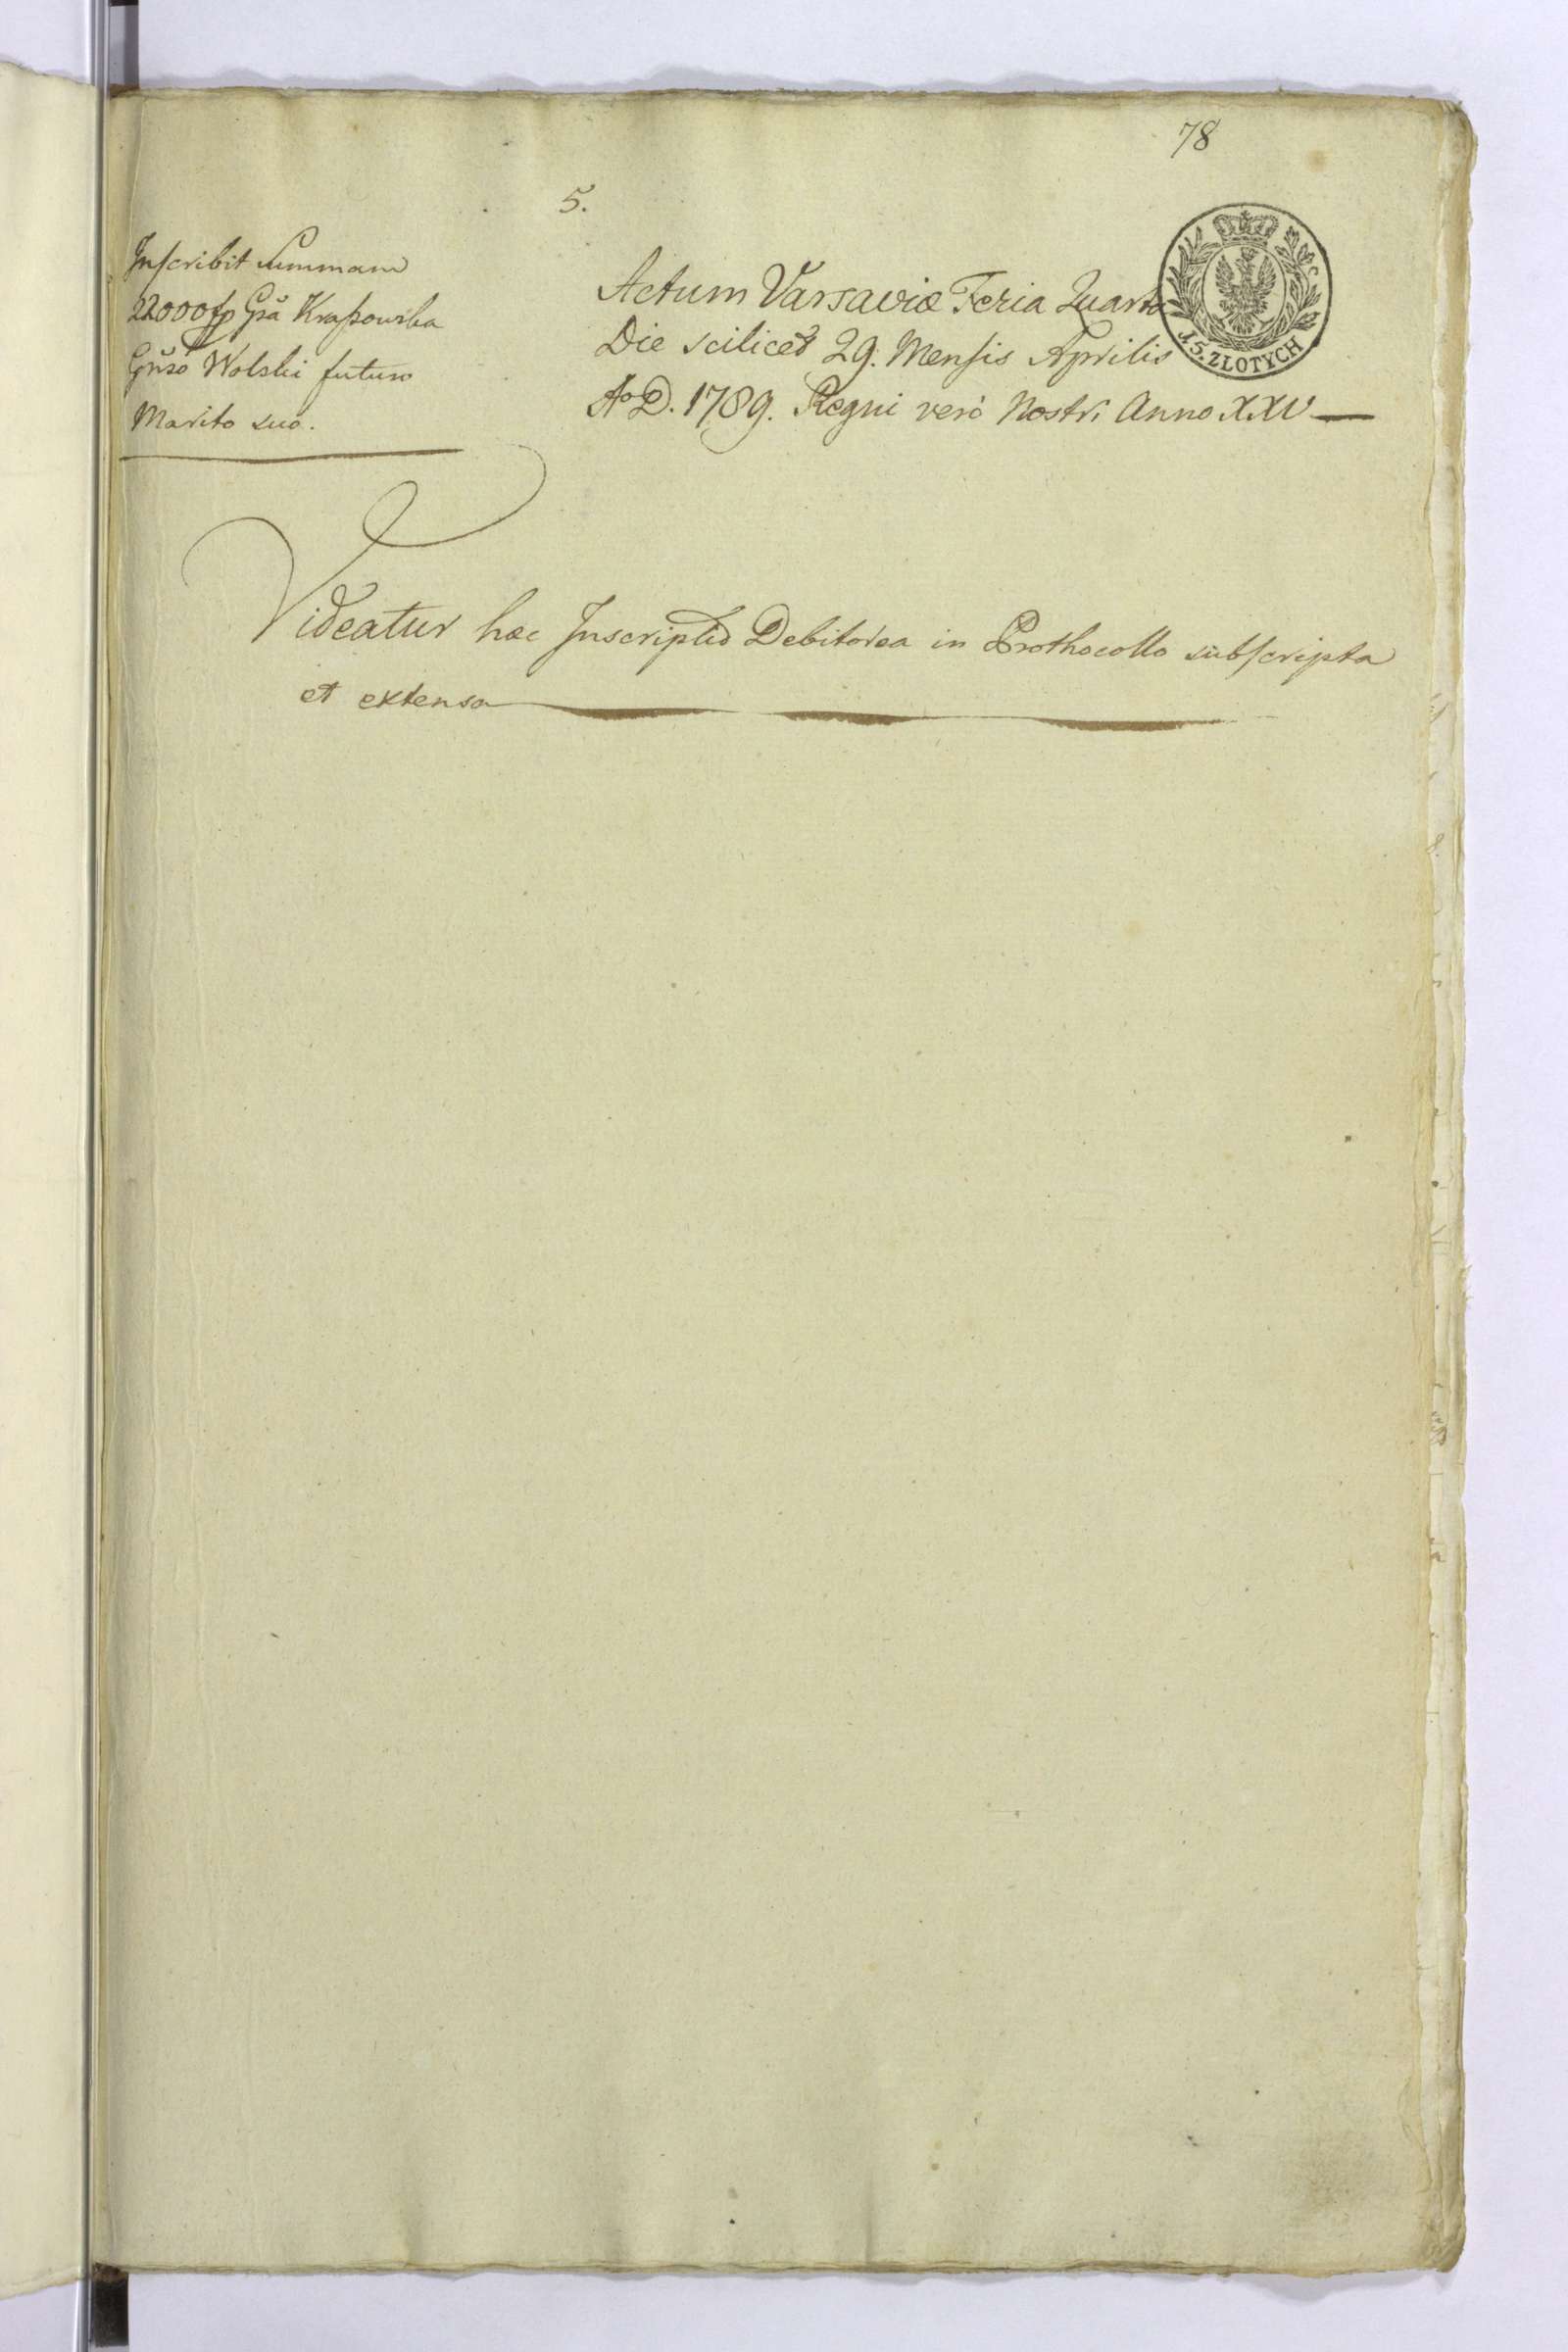 78
5.
Inscribit Summam
22000 fp Gsa Kraßowska
Gnso Wolski futuro
Marito suo.
Actum Varsaviæ Feria Quarta
Die scilicet 29. Mensis Aprilis
Ao D. 1789. Regni verò Nostri Anno XXV
15. ZLOTYCH
Videatur hæc Inscriptio Debitorea in Prothocollo subscripta
et extensa